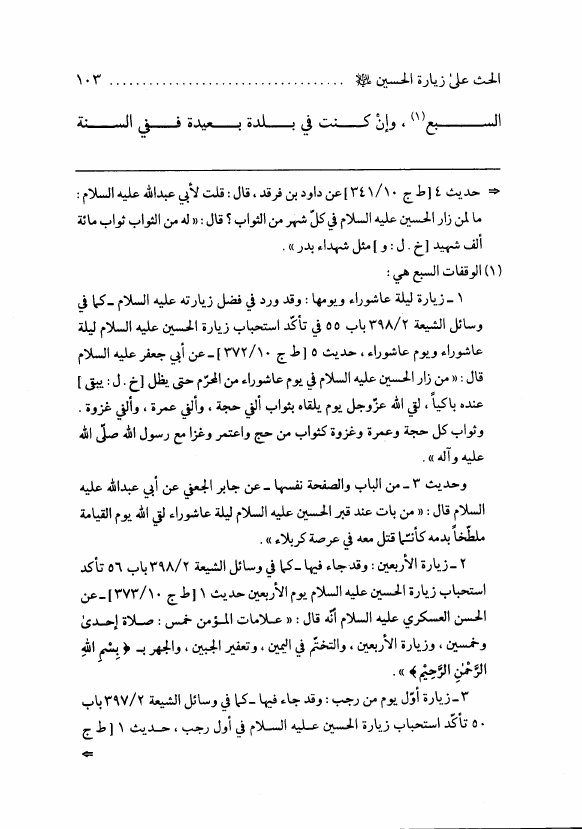 الحث على زيارة الحسين ﷺ ................................... ١٠٣
الســـبع(١) ، وإنْ كـــنت في بـــلدة بـــعيدة فـــفي الســـنة
⇐ حديث ٤ [ ط ج ٣٤١/١٠ ] عن داود بن فرقد ، قال : قلت لأبي عبدالله عليه السلام :
ما لمن زار الحسين عليه السلام في كلّ شهر من الثواب ؟ قال : « له من الثواب ثواب مائة
ألف شهيد [ خ . ل : و ] مثل شهداء بدر » .
(١) الوقفات السبع هي :
١ ـ زيارة ليلة عاشوراء ويومها : وقد ورد في فضل زيارته عليه السلام ـ كما في
وسائل الشيعة ٣٩٨/٢ باب ٥٥ في تأكّد استحباب زيارة الحسين عليه السلام ليلة
عاشوراء ويوم عاشوراء ، حديث ٥ [ ط ج ٣٧٢/١٠ ] ـ عن أبي جعفر عليه السلام
قال : « من زار الحسين عليه السلام في يوم عاشوراء من المحرّم حتى يظل [ خ . ل : يبقى ]
عنده باكياً ، لقي الله عزّوجل يوم يلقاه بثواب ألفي حجة ، وألفي عمرة ، وألفي غزوة .
وثواب كل حجة وعمرة وغزوة كثواب من حج واعتمر وغزا مع رسول الله صلّى الله
عليه وآله » .
وحديث ٣ ـ من الباب والصفحة نفسها ـ عن جابر الجعفي عن أبي عبدالله عليه
السلام قال : « من بات عند قبر الحسين عليه السلام ليلة عاشوراء لقي الله يوم القيامة
ملطّخاً بدمه كأنّما قتل معه في عرصة كربلاء » .
٢ ـ زيارة الأربعين : وقد جاء فيها ـ كما في وسائل الشيعة ٣٩٨/٢ باب ٥٦ تأكد
استحباب زيارة الحسين عليه السلام يوم الأربعين حديث ١ [ ط ج ٣٧٣/١٠ ] ـ عن
الحسن العسكري عليه السلام أنّه قال : « عـلامات المـؤمن خمس : صـلاة إحـدى
وخمسين ، وزيارة الأربعين ، والتختّم في اليمين ، وتعفير الجبين ، والجهر بـ ﴿ بِسْمِ اللهِ
الرَّحْمٰنِ الرَّحِيْمِ ﴾ » .
٣ ـ زيارة أوّل يوم من رجب : وقد جاء فيها ـ كما في وسائل الشيعة ٣٩٧/٢ باب
٥٠ تأكّد استحباب زيارة الحسين عـليه السـلام في أول رجب ، حـديث ١ [ ط ج
⇐